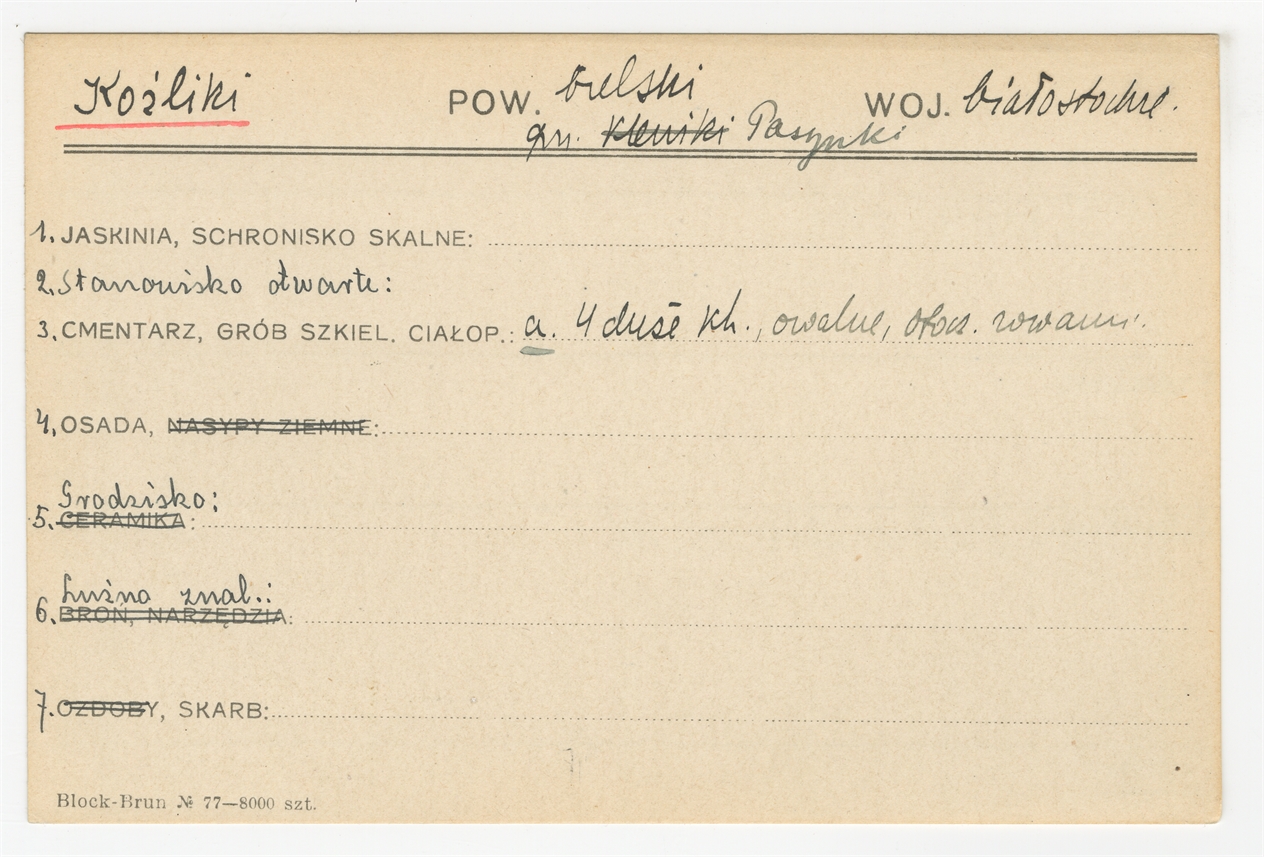 Koźliki POW. bielski WOJ. białostockie.
gm. Kleniki Pasynki
1. JASKINIA, SCHRONISKO SKALNE:
2. Stanowisko otwarte:
3. CMENTARZ, GRÓB SZKIEL. CIAŁOP.: a. 4 duże kh., owalne, otocz. rowami.
4. OSADA, NASYPY ZIEMNE:
Grodzisko:
5. CERAMIKA:
Luźno znal.:
6. BROŃ, NARZĘDZIA:
7. OZDOBY, SKARB:
Block-Brun № 77—8000 szt.